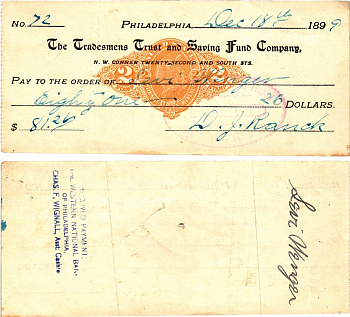 No. 72 PHILADELPHIA, Dec 18th 1899
The Tradesmens Trust and Saving Fund Company,
N. W. CORNER TWENTY-SECOND AND SOUTH STS.
PAY TO THE ORDER OF Levi Wenger
Eighty One 26 DOLLARS.
$ 81.26 D. J. Ranck
RECEIVED PAYMENT,
THE WESTERN NATIONAL BANK
OF PHILADELPHIA.
CHAS. F. WIGNALL, Asst. Cashier
Levi Wenger